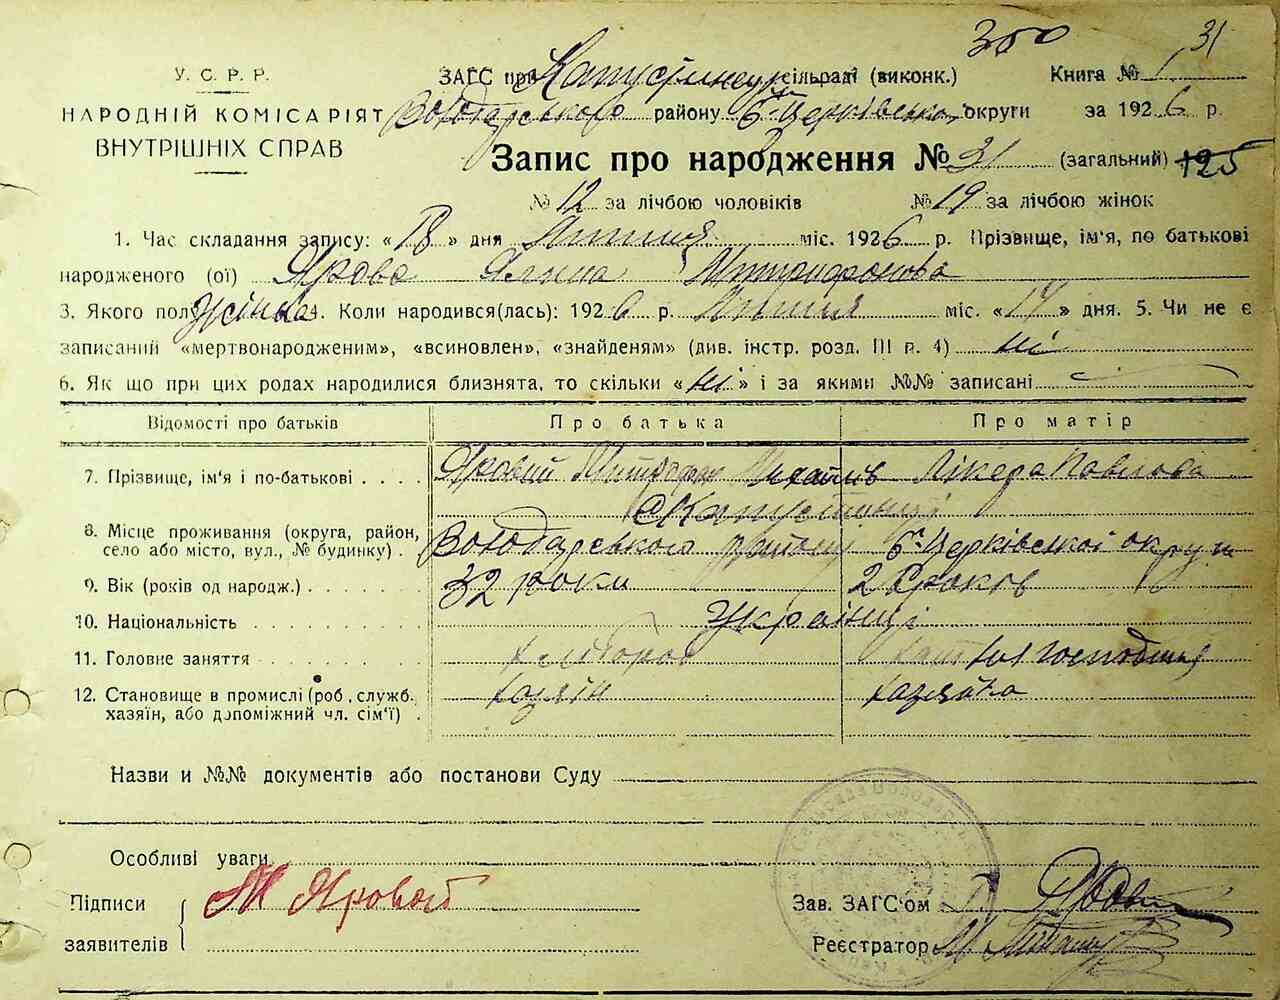 300 31
У. С. Р. Р.
НАРОДНІЙ КОМІСАРІЯТ
ВНУТРІШНІХ СПРАВ
ЗАГС при Капустинецк. сільраді (виконк.) Книга № 1
Володарського району Б-Церківської округи за 1926 р.
Запис про народження № 31 (загальний) 125
№ 12 за лічбою чоловіків № 19 за лічбою жінок
1. Час складання запису: «18» дня Липня міс. 1926 р. Прізвище, ім'я, по батькові
народженого (ої) Ярова Галина Митрофанова
3. Якого полу жінка 4. Коли народився(лась): 1926 р. Липня міс. «14» дня. 5. Чи не є
записаний «мертвонародженим», «всиновлен», «знайденям» (див. інстр. розд. III п. 4) ні
6. Як що при цих родах народилися близнята, то скільки «ні» і за якими №№ записані
Відомості про батьків Про батька Про матір
7. Прізвище, ім'я і по-батькові . . . . Яровий Митрофан Михайлів Лікера Павлова
с Капустинці
8. Місце проживання (округа, район, село або місто, вул., № будинку) . Володарського району Б-Церківської округи
9. Вік (років од народж.) . . . . . . . 32 роки 28 років
10. Національність . . . . . . . . . . Українці
11. Головне заняття . . . . . . . . . хлібороб господиня
12. Становище в промислі (роб., служб. хазяїн, або допоміжний чл. сім'ї) . хазяїн хазяйка
Назви и №№ документів або постанови Суду
Особливі уваги
Підписи
заявителів
М Яровой
Зав. ЗАГС'ом
Реєстратор М.